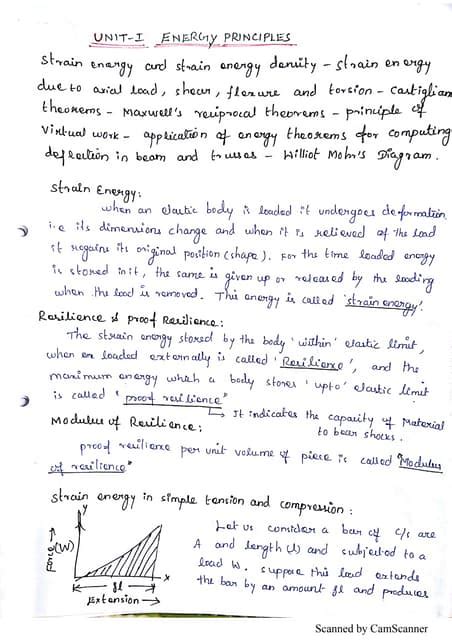 UNIT-I ENERGY PRINCIPLES
Strain energy and strain energy density - strain energy
due to axial load, shear, flexure and torsion - Castiglian
theorems - Maxwell's reciprocal theorems - principle of
virtual work - application of energy theorems for computing
deflection in beam and trusses - Williot Mohr's Diagram.
Strain Energy:
when an elastic body is loaded it undergoes deformation
i.e its dimensions change and when it is relieved of the load
it regains its original position (shape). For the time loaded energy
is stored in it, the same is given up or released by the loading
when the load is removed. This energy is called 'strain energy'.
Resilience & proof Resilience:
The strain energy stored by the body 'within' elastic limit,
when loaded externally is called 'Resilience', and the
maximum energy which a body stores 'upto' elastic limit
is called "proof resilience"
↳ It indicates the capacity of Material
to bear shocks.
Modulus of Resilience:
proof resilience per unit volume of piece is called "Modulus
of resilience"
Strain energy in simple tension and compression:
y
Force →
(W)
x
δl
Extension →
Let us consider a bar of c/s are
A and length (l) and subjected to a
load W. suppose this load extends
the bar by an amount δl and produces
Scanned by CamScanner